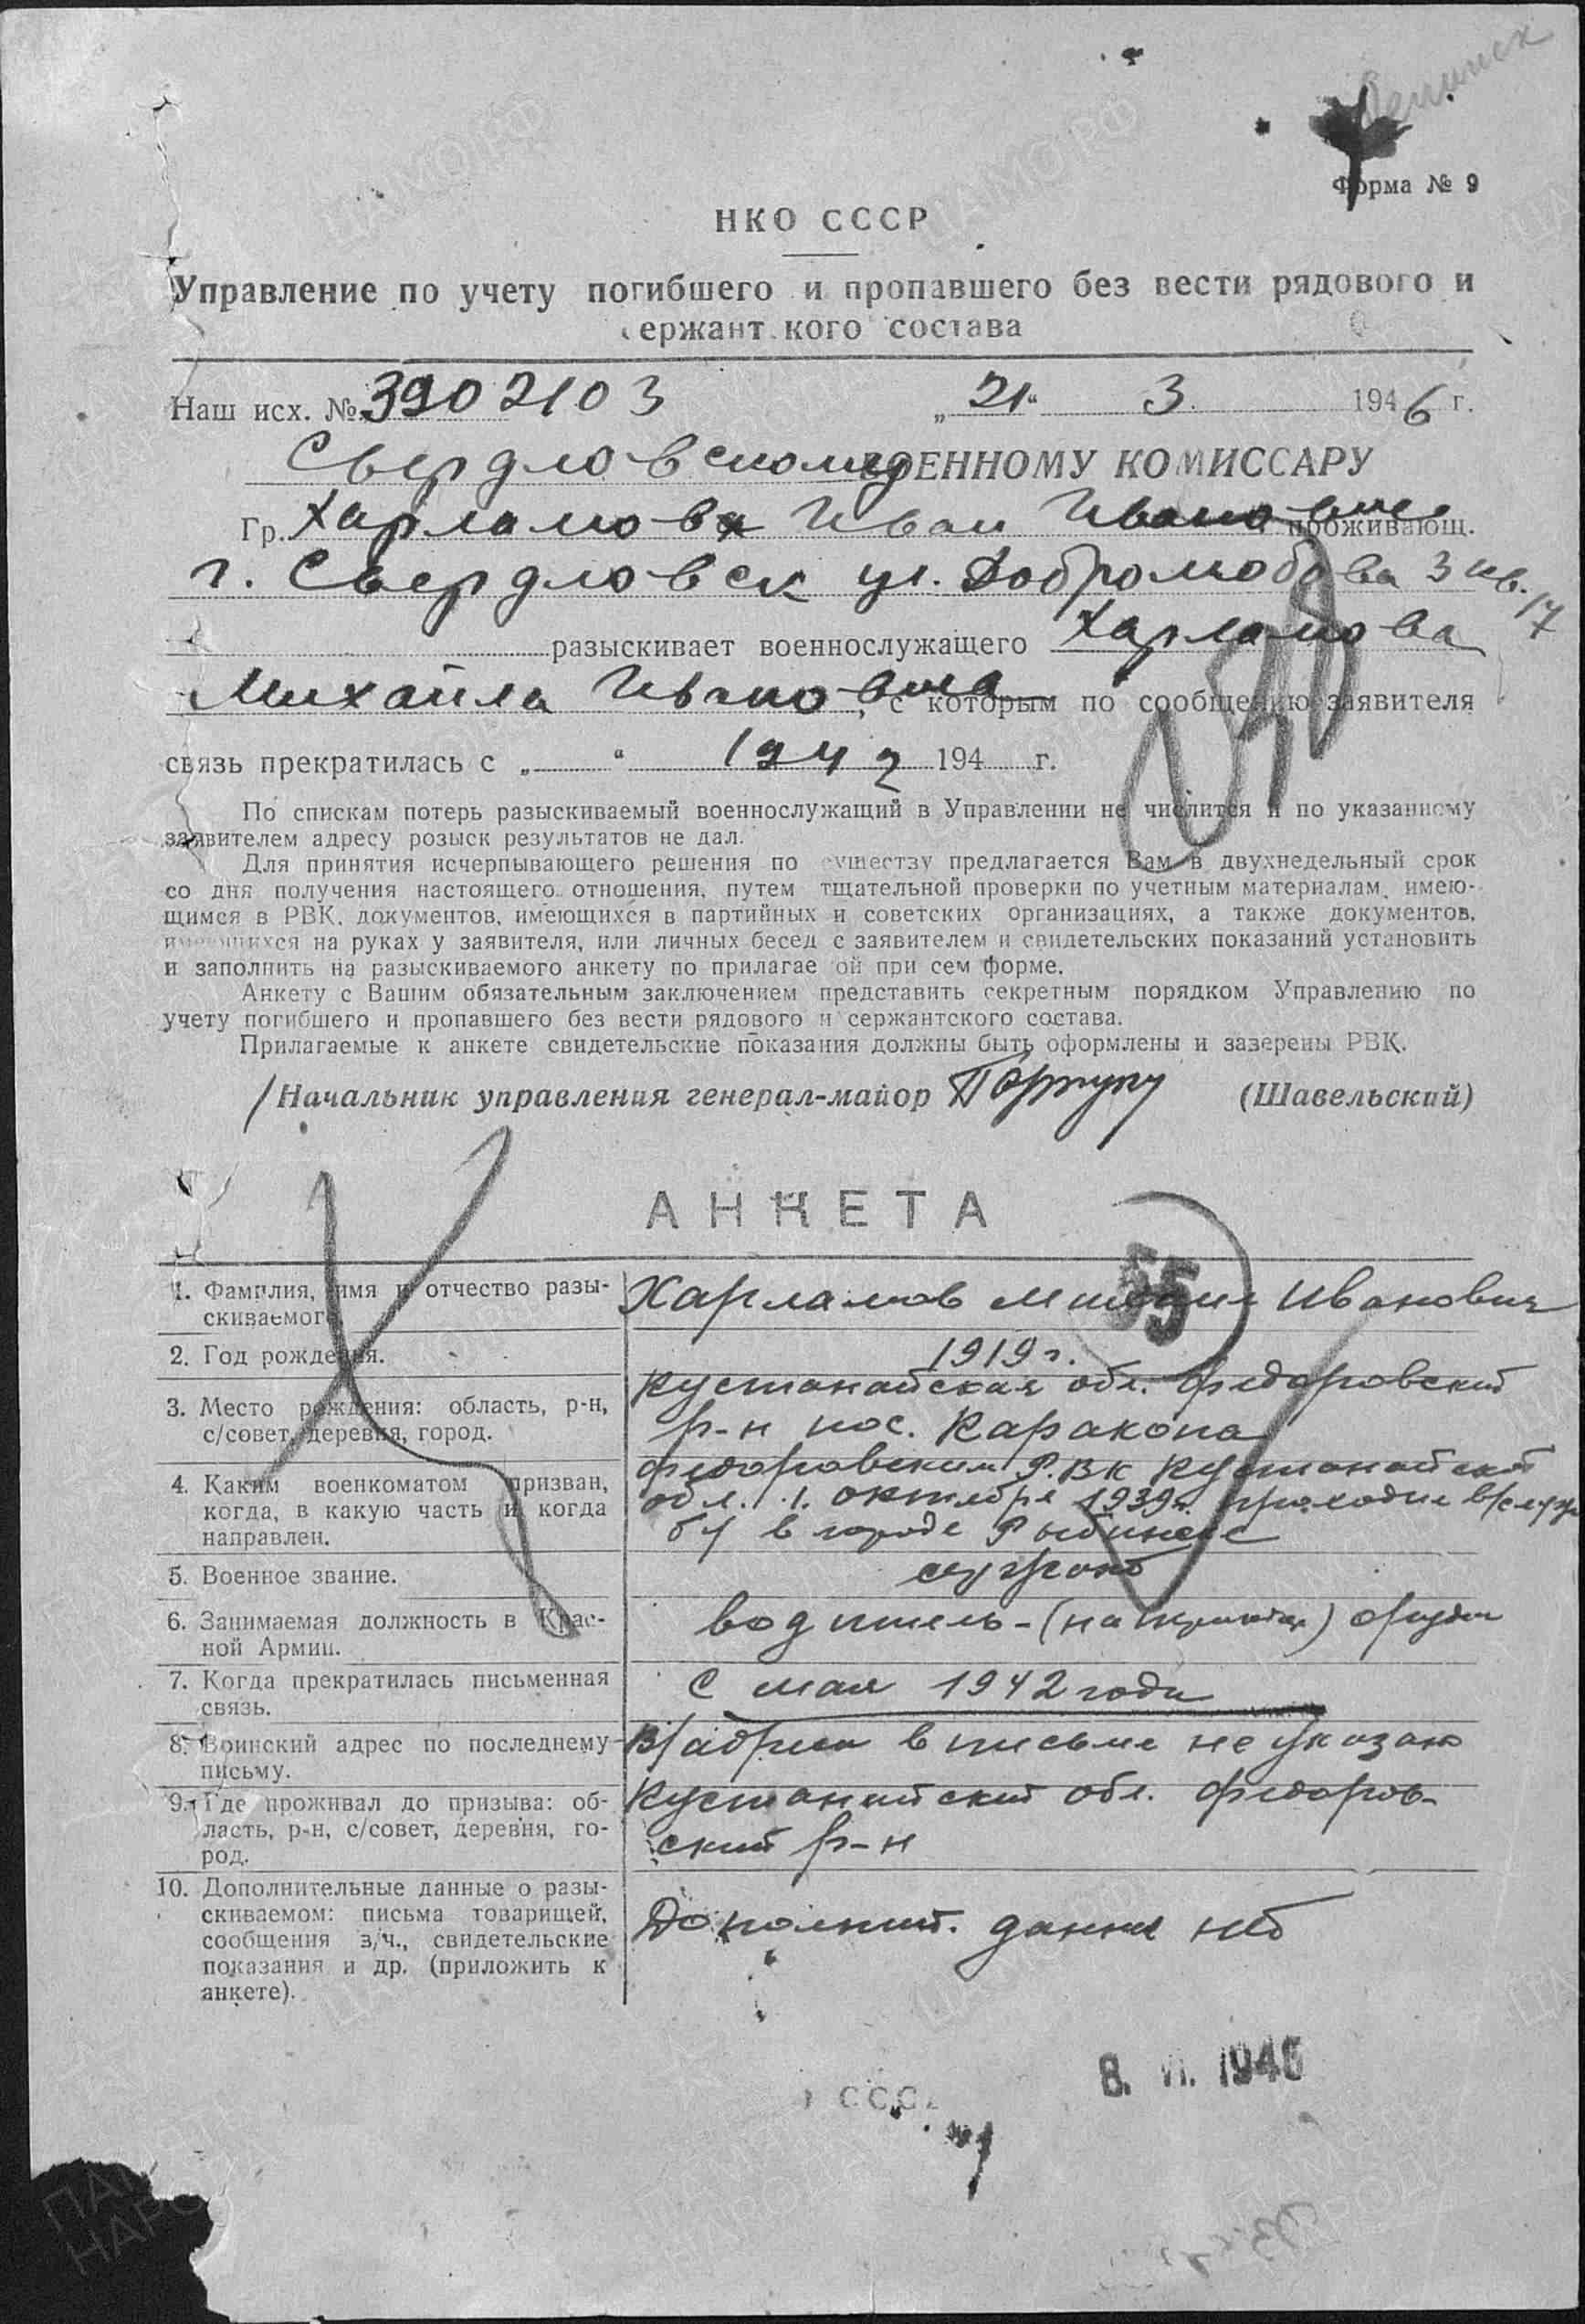 Форма № 9
НКО СССР
Управление по учету погибшего и пропавшего без вести рядового и
сержант кого состава
Наш исх. № 3902103 „21“ 3. 1946 г.
Свердловскому ВОЕННОМУ КОМИССАРУ
Гр. Харламов Иван Иванович проживающ.
г. Свердловск ул. Добролюбова 3 кв. 17
разыскивает военнослужащего Харламова
Михаила Ивановича, с которым по сообщению заявителя
связь прекратилась с „ “ 1942 194 г.
По спискам потерь разыскиваемый военнослужащий в Управлении не числится и по указанному
заявителем адресу розыск результатов не дал.
Для принятия исчерпывающего решения по существу предлагается Вам в двухнедельный срок
со дня получения настоящего отношения, путем тщательной проверки по учетным материалам, имею-
щимся в РВК, документов, имеющихся в партийных и советских организациях, а также документов,
имеющихся на руках у заявителя, или личных бесед с заявителем и свидетельских показаний установить
и заполнить на разыскиваемого анкету по прилагае ой при сем форме.
Анкету с Вашим обязательным заключением представить секретным порядком Управлению по
учету погибшего и пропавшего без вести рядового и сержантского состава.
Прилагаемые к анкете свидетельские показания должны быть оформлены и заверены РВК.
/Начальник управления генерал-майор (Шавельский)
АНКЕТА
55
1. Фамилия, имя и отчество разы-
скиваемого
Харламов Михаил Иванович
2. Год рождения.
1919 г.
3. Место рождения: область, р-н,
с/совет, деревня, город.
Кустанайская обл. Федоровский
р-н пос. Каракопа
4. Каким военкоматом призван,
когда, в какую часть и когда
направлен.
Федоровским Р.ВК Кустанайской
обл. 1. октября 1939 г. проходил в/служ
бу в городе Рыбинске
5. Военное звание.
сержант
6. Занимаемая должность в Крас-
ной Армии.
водитель-(на тракторах) орудия
7. Когда прекратилась письменная
связь.
С мая 1942 года
8. Воинский адрес по последнему
письму.
В/адрес в письме не указан
9. Где проживал до призыва: об-
ласть, р-н, с/совет, деревня, го-
род.
Кустанайский обл. Федоров-
ский р-н
10. Дополнительные данные о разы-
скиваемом: письма товарищей,
сообщения з/ч., свидетельские
показания и др. (приложить к
анкете).
Дополнит. данных нет
8. VI. 1946
СССР